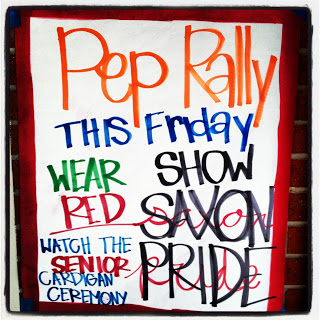 Pep Rally
THIS Friday
WEAR
RED
SHOW
SAXON
PRIDE
WATCH THE
SENIOR
CARDIGAN
CEREMONY